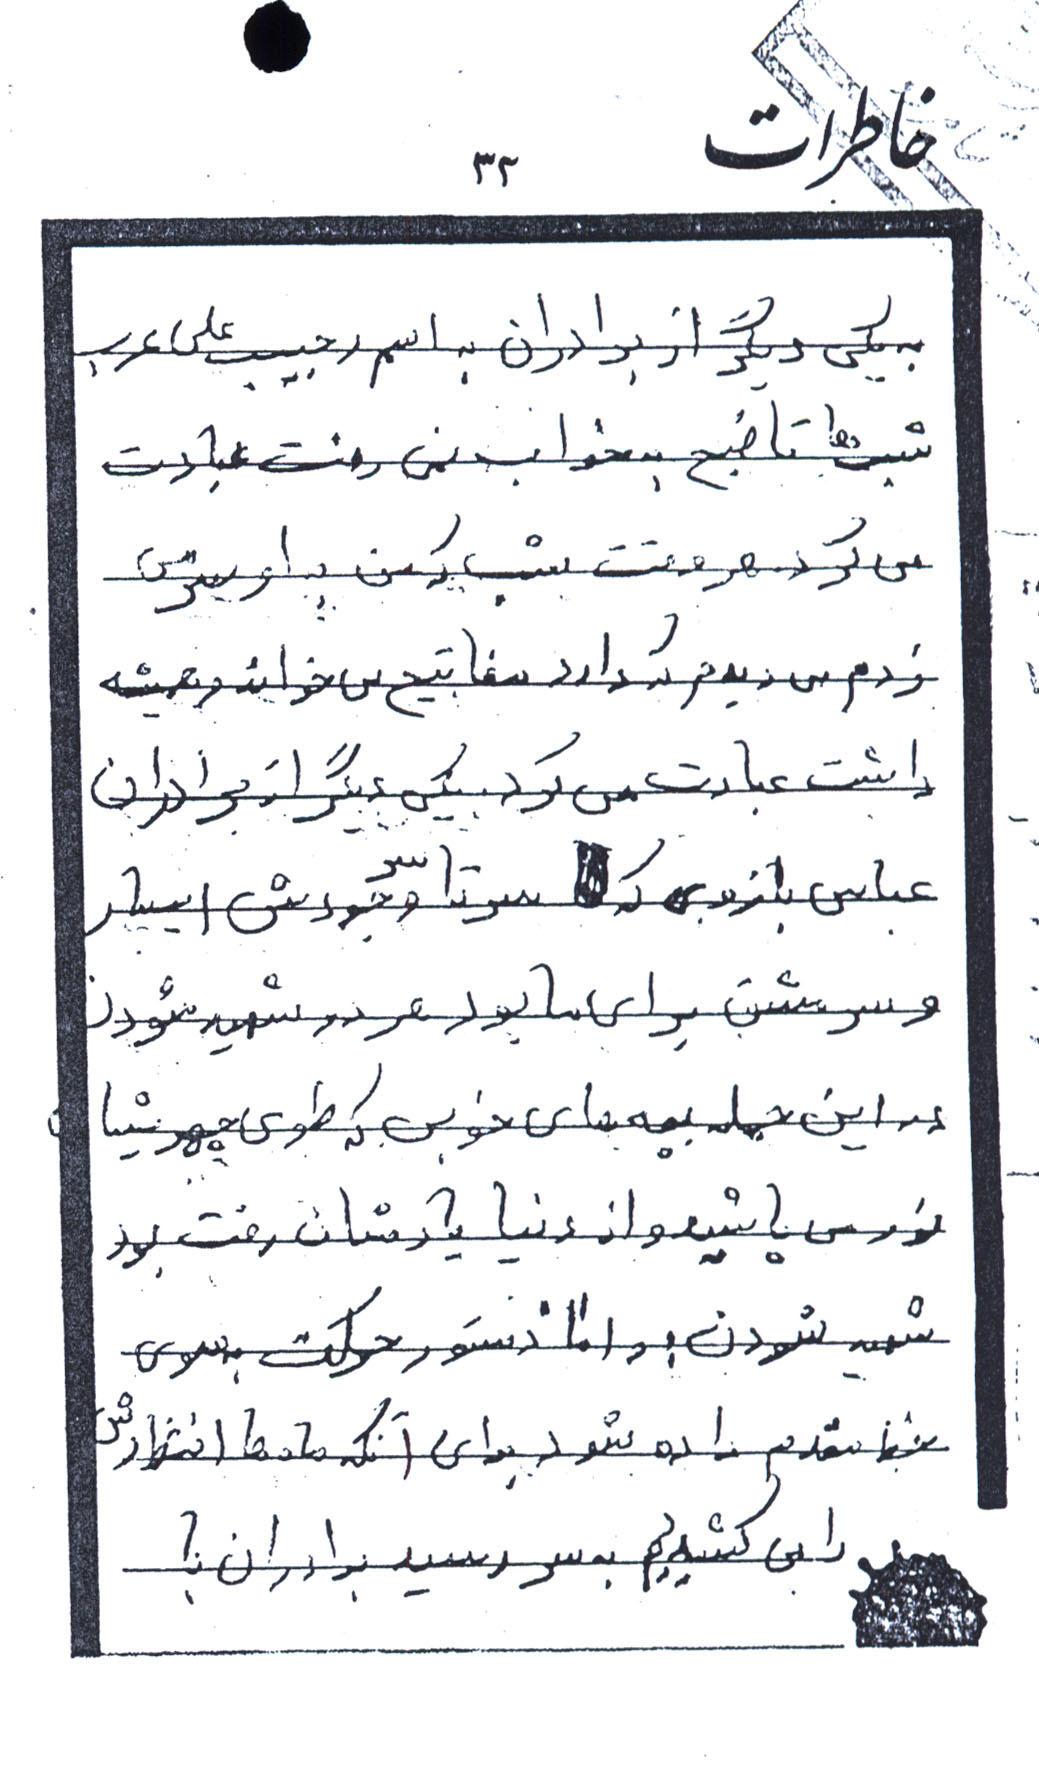 خاطرات
۳۲
به یکی دیگر از برادران به اسم رجیب علی عرب
شب ها تا صبح به خواب نمی رفت عبادت
می کرد هر وقت شب که من به او سر می
زدم می دیدم که دارد مفاتیح می خواند و همیشه
داشت عبادت می کرد یکی دیگر از برادران
عباس بازوی که سر تا سر وجودش ایسار
و سرمشق برای ما بود هر دو شهید شودن
در این حمله بچه های خوبی که طوی چهرشان
نور می پاشید و از دنیا یادشان رفت بود
شهید شودن اما دستور حرکت به سوی
خط مقدم داده شود برای آنکه ماه ها انتظارش
را می کشیدیم به سر رسید برادران با